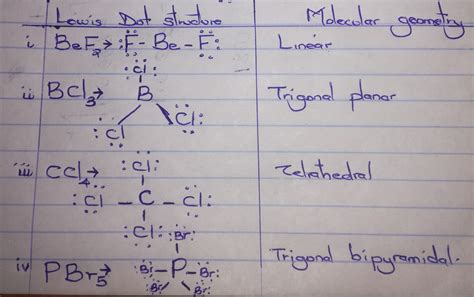 Lewis Dot structure Molecular geometry
i, BeF2→ :F - Be - F: Linear
:Cl:
ii, BCl3→ B Trigonal planar
:Cl Cl:
iii, CCl4→ :Cl: Tetrahedral
:Cl - C - Cl:
:Cl:
:Br: Trigonal bipyramidal.
iv, PBr5→ :Br - P - Br:
:Br Br: